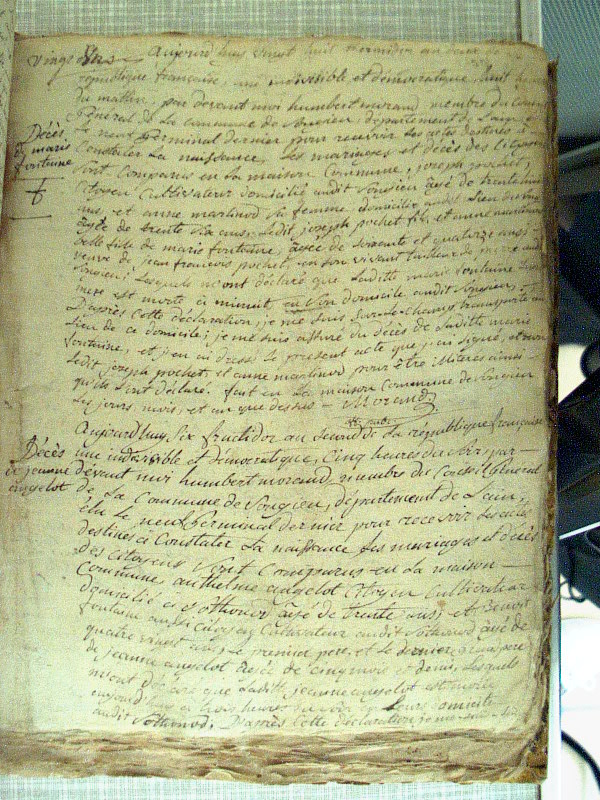 vingt
Aujourd'huy vingt huit Thermidor an deux de la
république française, une indivisible et démocratique, huit heures
du matin, par devant moi humbert morand membre du Conseil
Général de la Commune de Songieu, département de l'ain, élu
Le neuf Germinal dernier pour recevoir les actes destinés à
Constater La naissance, Les mariages et décès des Citoyens
Décès
de marie
fontaine
Sont Comparus en La maison Commune, joseph pochet,
Citoyen Cultivateur domicilié audit Songieu âgé de trente
ans, et anne martinod sa femme domiciliée audit Lieu
âgée de trente six ans, Ledit joseph pochet fils, et anne martinod
belle fille de marie fontaine, âgée de soixante et quatorze ans
veuve de jean françois pochet, en son vivant
Songieu; Lesquels m'ont déclaré que Laditte marie fontaine
mere est morte à minuit, en son domicile audit Songieu,
D'après Cette déclaration, je me suis sur-le-champ transporté au
Lieu de ce domicile; je me suis assuré du décès de Laditte marie
fontaine, et j'en ai dressé Le présent acte que j'ai signé, et non
Ledit joseph pochet, et anne martinod pour être illiterés ainsi
qu'ils L'ont déclaré. fait en La maison Commune de Songieu
Les jours, mois, et an que dessus - Morand
Aujourd'huy, Six fructidor an Second de La république française
Décès
de jeanne
angelot
une indivisible et démocratique, Cinq heures du soir, par-
devant moi humbert morand, membre du Conseil Général
de La Commune de Songieu, département de L'ain,
élu Le neuf Germinal dernier pour recevoir Les actes
destinés à Constater La naissance Les mariages et décès
des Citoyens Sont Comparus en La maison
Commune, anthelme angelot Citoyen Cultivateur
domicilié à Sothonod, âgé de trente ans; et Benoit
fontaine aussi Citoyen Cultivateur audit Sothonod âgé de
quatre vingt ans, Le premier pere, et Le dernier
de jeanne angelot âgée de cinq mois et demi, Lesquels
m'ont déclaré que Laditte jeanne angelot est morte
aujourd'huy à trois heures du soir en Leurs domicile
audit Sothonod. D'après Cette déclaration, je me suis